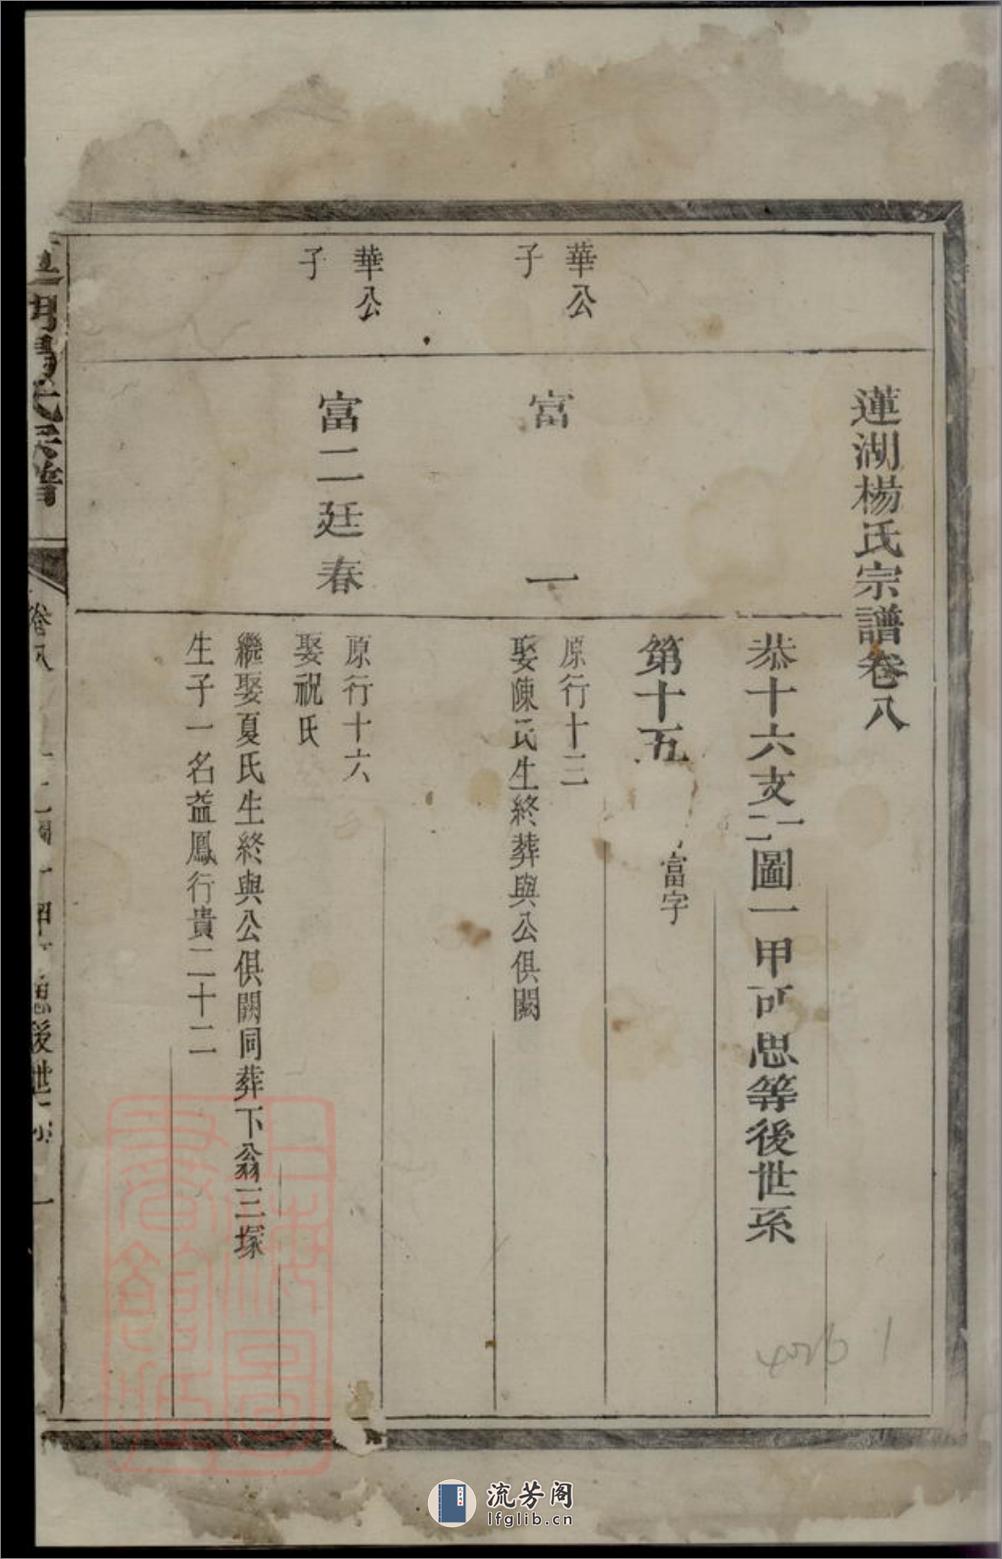 蓮湖楊氏宗譜卷八
恭十六支一二圖一甲可思等後世系
第十五
富字
華公
子
富一
原行十三
娶陳氏生終葬與公俱闕
華公
子
富二廷春
原行十六
娶祝氏
繼娶夏氏生終與公俱闕同葬下翁三塚
生子一名益鳳行貴二十二
湖楊氏宗譜
卷八
後世
一
上海圖書館藏
4026 1
流芳阁
lfglib.cn